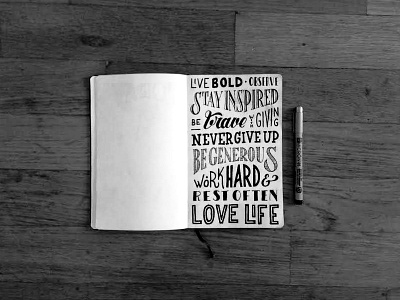 LIVE BOLD · OBSERVE
STAY INSPIRED
BE brave & GIVING
NEVER GIVE UP
BE GENEROUS
WORK HARD &
REST OFTEN
LOVE LIFE